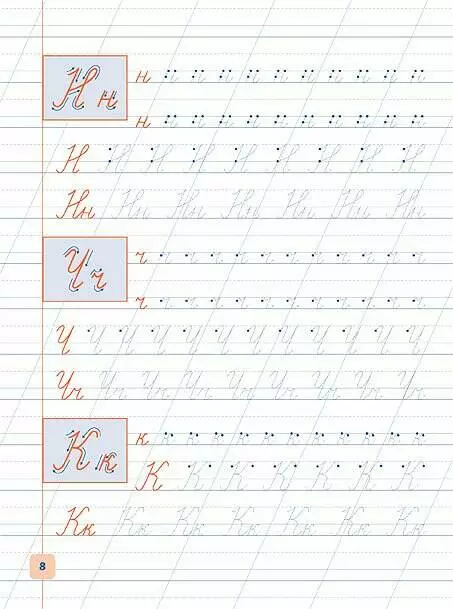 Н н
н н н н н н н н н н н
н н н н н н н н н н н
Н Н Н Н Н Н Н Н Н
Нн Нн Нн Нн Нн Нн Нн
Ч ч
ч ч ч ч ч ч ч ч ч ч ч ч
ч ч ч ч ч ч ч ч ч ч ч ч
Ч Ч Ч Ч Ч Ч Ч Ч Ч Ч Ч Ч
Чч Чч Чч Чч Чч Чч Чч Чч Чч
К к
к к к к к к к к к к к к
К К К К К К К
Кк Кк Кк Кк Кк Кк Кк
8